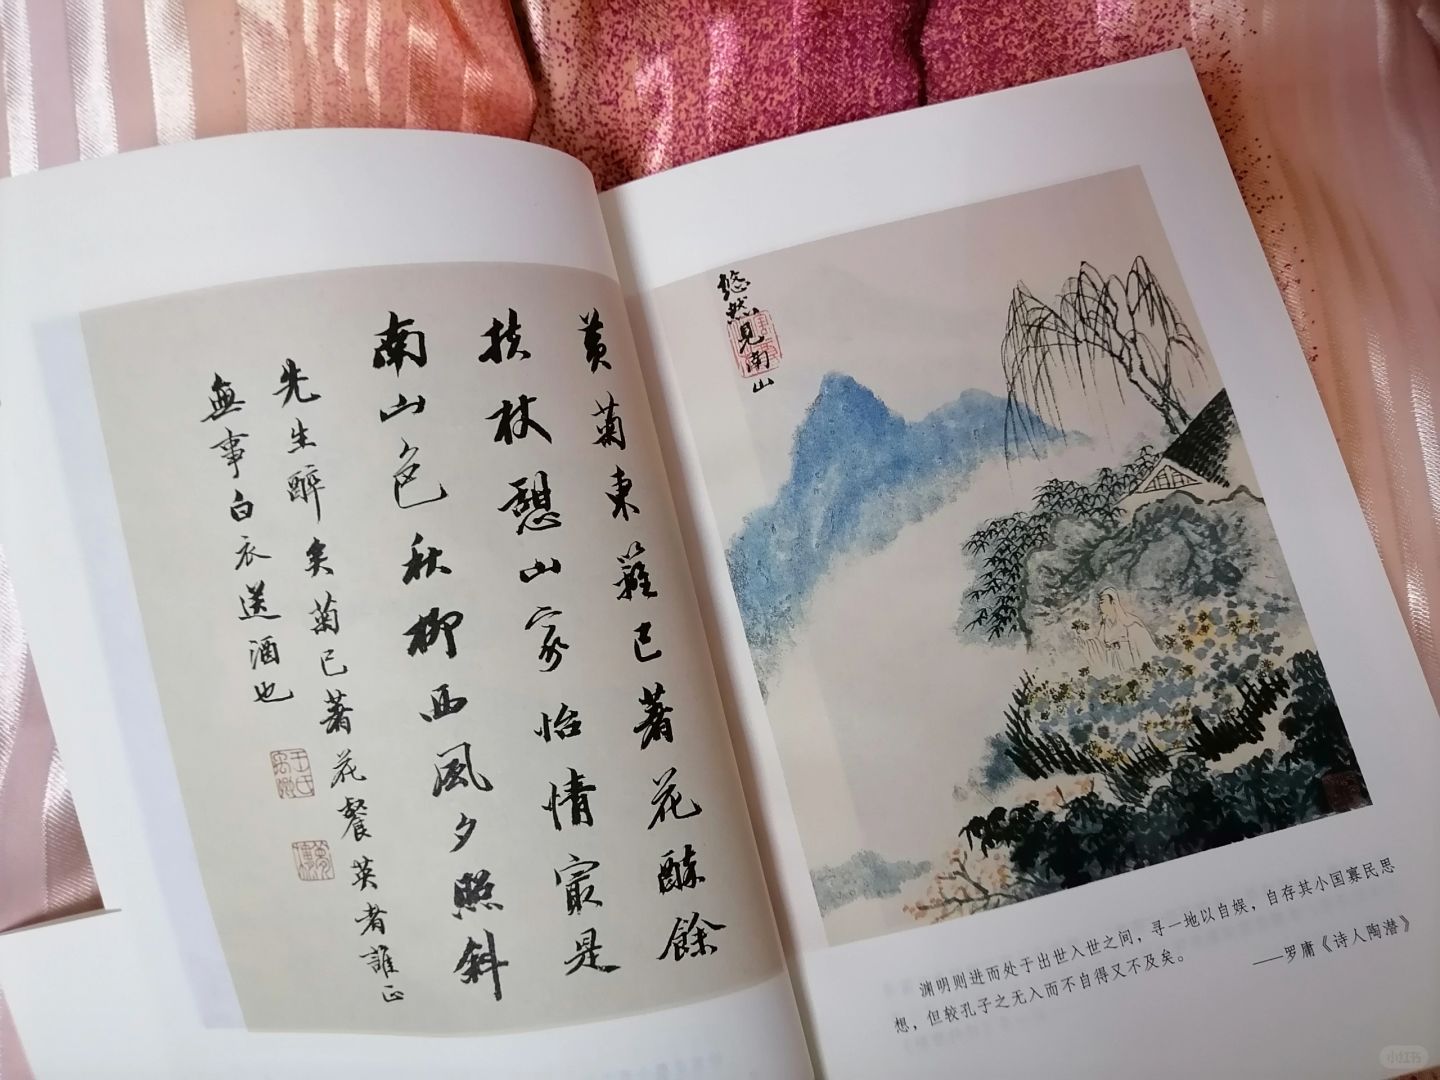 黄菊東籬已著花醉餘
扶杖憩山家怡情最是
南山色秋柳西風夕照斜
先生醉矣菊已著花餐英者誰正
無事白衣送酒也
悠然見南山
渊明则进而处于出世入世之间，寻一地以自娱，自存其小国寡民思
想，但较孔子之无入而不自得又不及矣。
——罗庸《诗人陶潜》
小红书